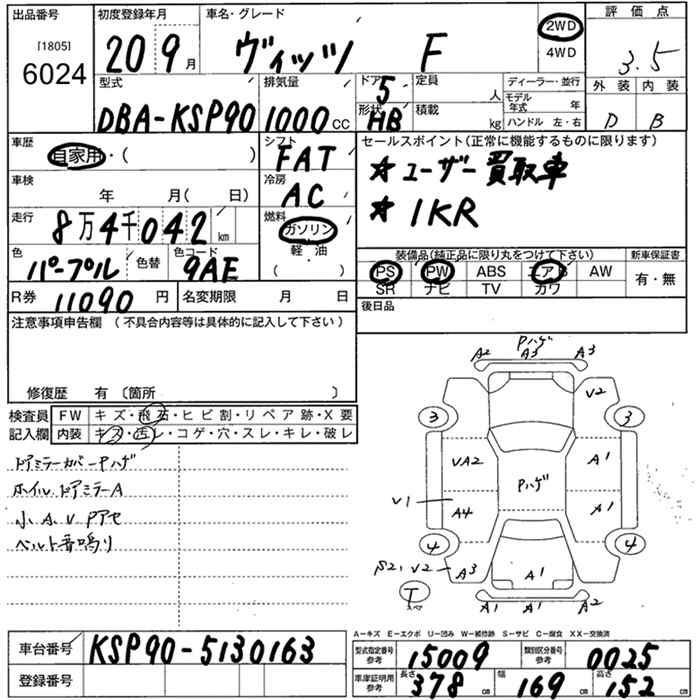 出品番号 初度登録年月 車名・グレード 評価点
[1805] 6024 20 9月 ヴィッツ F 2WD 4WD 3.5
型式 排気量 ドア 5 定員 人 ディーラー・並行 外装 内装
DBA-KSP90 1000CC 形状 HB 積載 kg モデル年式 年 ハンドル 左・右 D B
車歴 自家用・( ) シフト FAT セールスポイント(正常に機能するものに限ります)
車検 年 月( 日) 冷房 AC ★ユーザー買取車
走行 8万4千042km 燃料 ガソリン 軽・油 ( ) ★1KR
色 パープル 色替 色コード 9AE 装備品(純正品に限り丸をつけて下さい) 新車保証書
PS PW ABS エアB AW 有・無
SR ナビ TV カワ
R券 11090円 名変期限 月 日 後日品
注意事項申告欄(不具合内容等は具体的に記入して下さい)
修復歴 有〔箇所 〕
検査員記入欄 FW キズ・飛石・ヒビ割・リペア跡・X要
内装 キズ・汚レ・コゲ・穴・スレ・キレ・破レ
ドアミラーカバーPハゲ
ホイル、ドアミラーA
小A.V Pアセ
ベルト音鳴り
Pハゲ
A2 A3 A3
V2
3 3
VA2 Pハゲ A1
V1 A4 A1
4 4
S21,V2 A3 A1
T スペア A1 A1 A2
A—キズ E—エクボ U—凹み W—補修跡 S—サビ C—腐食 XX—交換済
車台番号 KSP90-5130163 型式指定番号 参考 15009 類別区分番号 参考 0025
登録番号 車庫証明用 参考 長さ 378cm 幅 169cm 高さ 152cm